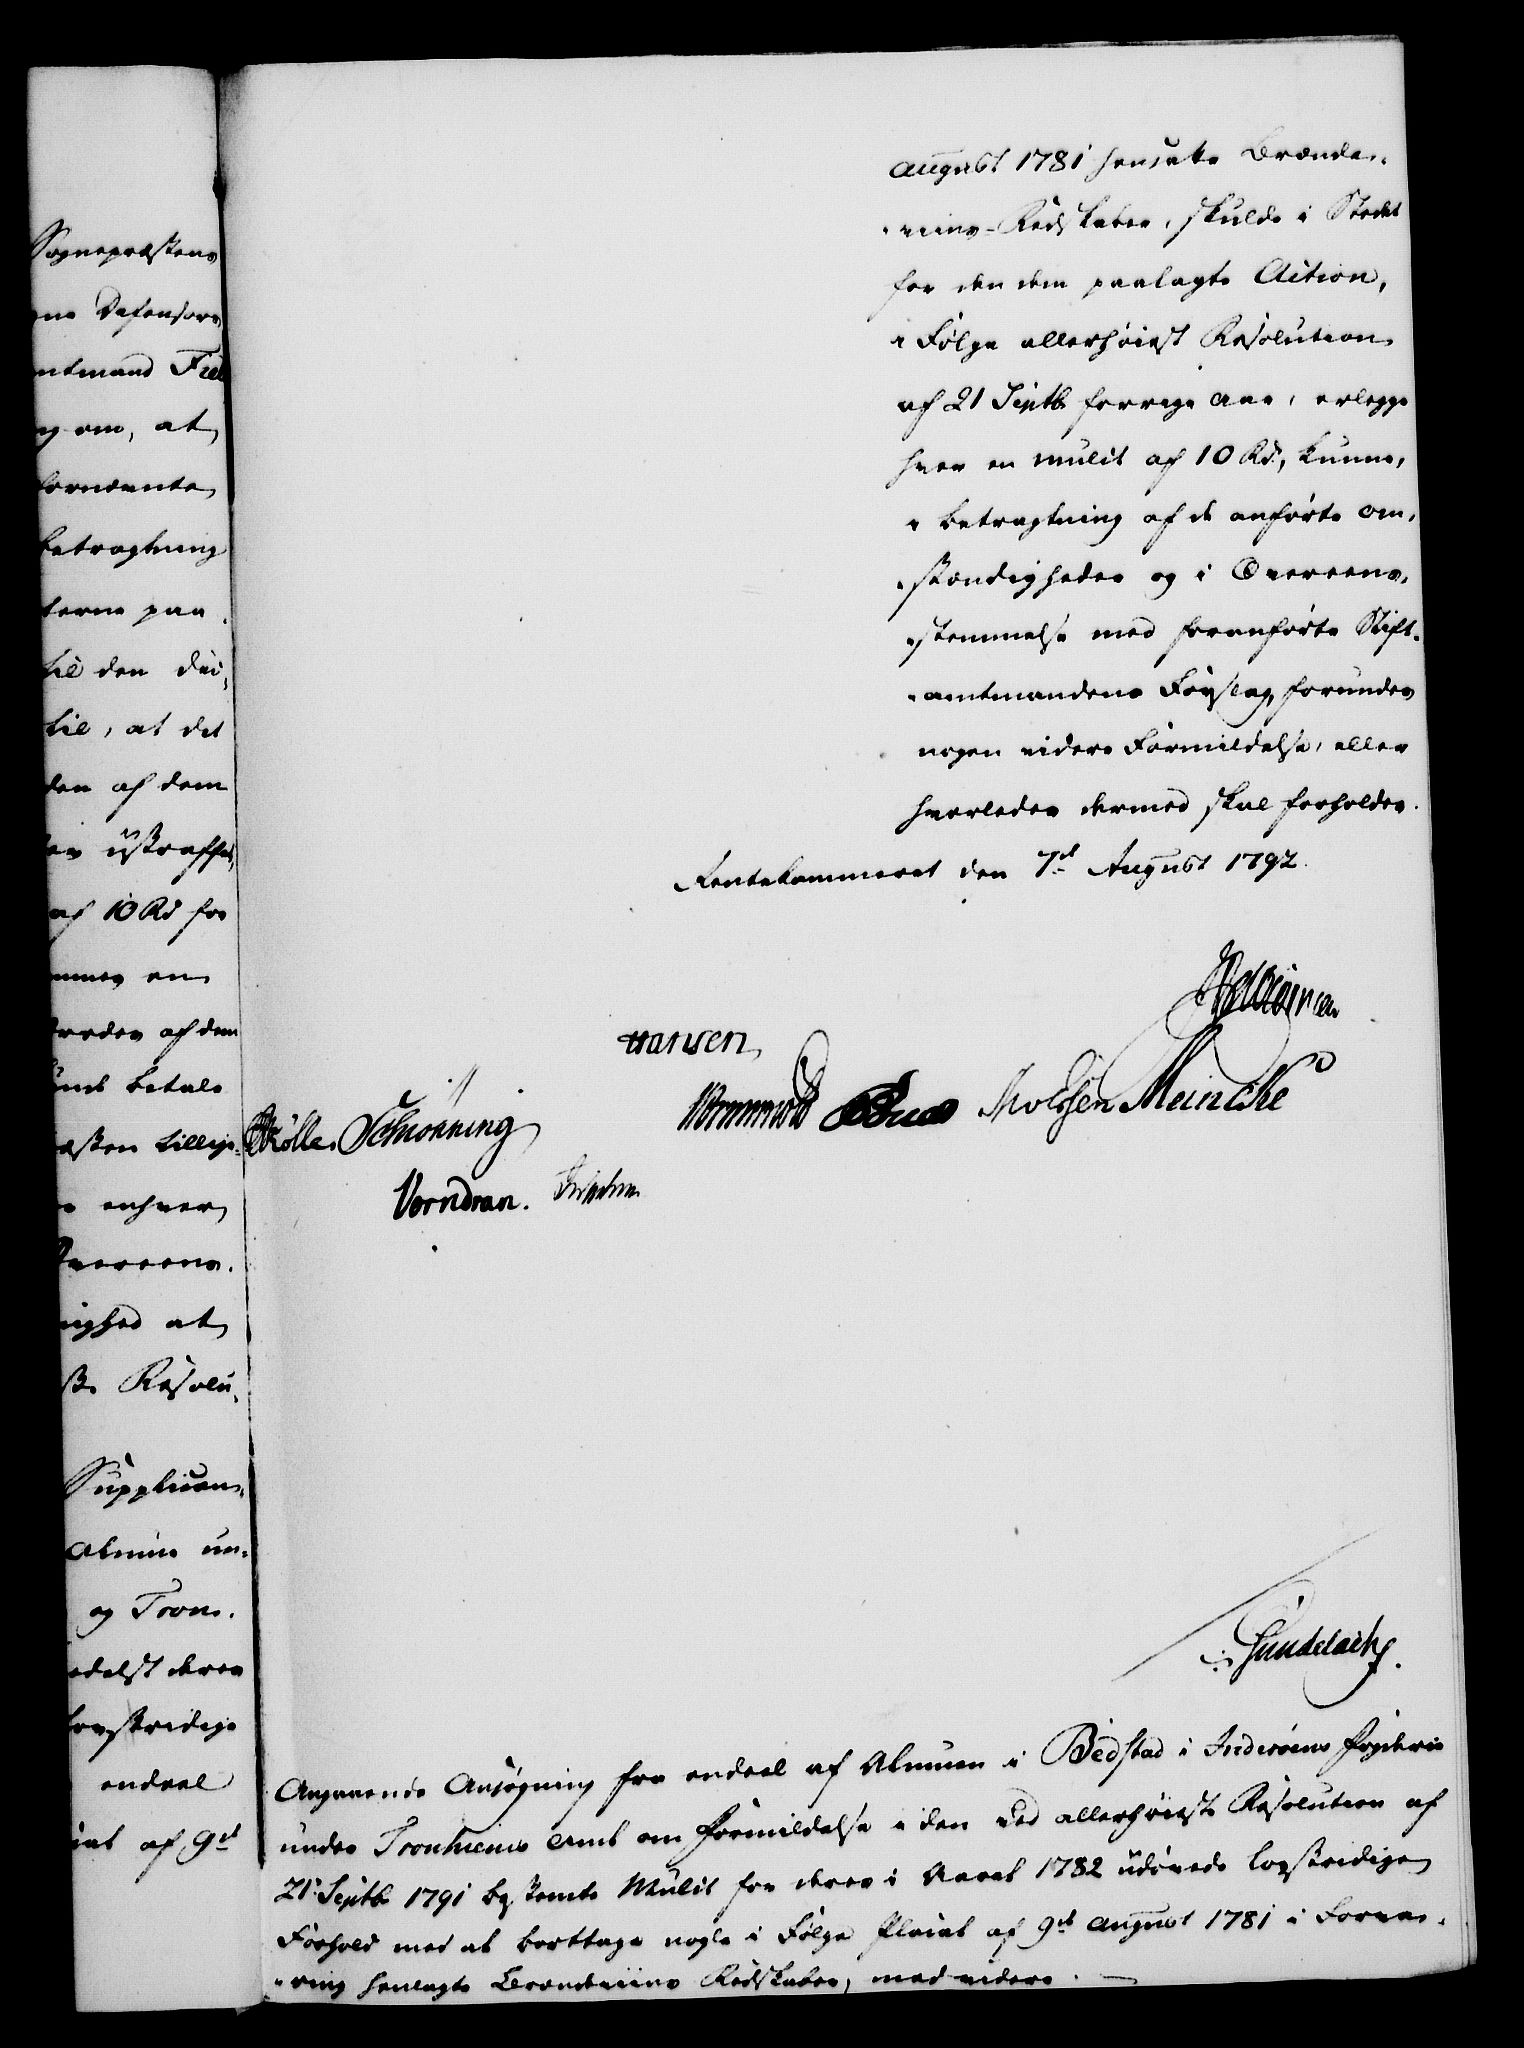 Sognepræstens
ne Defensors
mtmand Fiel
g om, at
fornævnte
betragtning
terne paa
til den Dic,
til, at det
den af dem
en ustraffet,
af 10 Rd for
mmes en
redes af dem
betale
esten billige
enhver
vereens
ighed at
ste Resolu,
Supplican,
Almue un,
og Tron,
edelst deres
lovstridige
endeel
cat af 9de
August 1781 hensatte Brænde,
viins-Redskaber, skulde i Stedet
for den dem paalagte Action,
i Følge allerhøiest Resolution
af 21 Septb. forrige Aar, erlegge
hver en Mulct af 10 Rd., kunne,
i betragtning af de anførte Om,
stændigheder og i Overeens,
stemmelse med foranførte Stift,
amtmandens Forslag, forundes
nogen videre Formildelse, eller
hvorledes dermed skal forholdes.
Rentekammeret den 7de August 1792.
Hansen
Wormskiold Moldsen Meincke
Schiønning
Vorndran.
Gundelach.
Angaaende Ansøgning fra endeel af Almuen i Bedstad i Inderøens Fogderie
under Tronhiems Amt om Formildelse i den ved allerhøieste Resolution af
21. Septb. 1791 bestemte Mulct for deres i Aaret 1782 udøvede lovstridige
Forhold med at borttage nogle i Følge Placat af 9de August 1781 i Forva,
ring henlagte Brændeviins Redskaber, med videre.